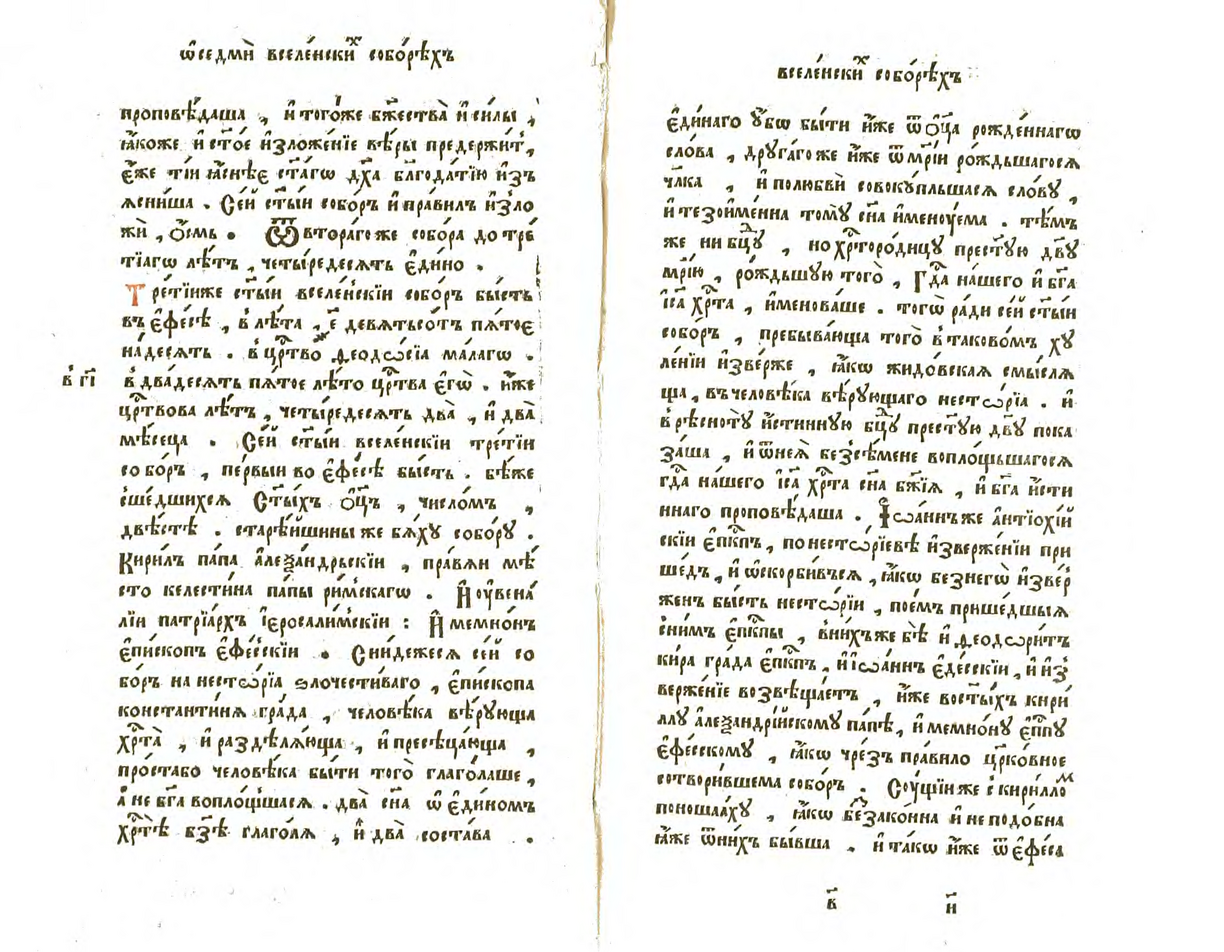 ѡ҆седмѝ вселе́нски́хъ собо́рѣхъ
проповѣ́даша , и҆ тогѡ́же бж҃ества̀ и҆ си́лы ,
ꙗ҆́коже и҆ ст҃о́е и҆зложе́нїе вѣ́ры предержи́т ,
є҆́же ті́и ꙗ҆снѣ́е ст҃а́гѡ дх҃а бл҃года́тїю и҆зъ
ѧсни́ша . Се́й ст҃ы́и собо́ръ и҆ пра́вилъ и҆зло
жѝ , ѻ҆́смь . Ѿ втора́гоже собо́ра до тре́
тїагѡ лѣ́тъ , четы́редесѧтъ є҆ди́но .
Тре́тїиже ст҃ы́и вселе́нскїи собо́ръ бы́сть
въ є҆фе́сѣ , в лѣ́та , ҂є девѧтьсо́тъ пѧ́тое
на́десѧть . в црⷭ҇тво ѳеодѡ́сїа ма́лагѡ .
в гі
в два́десѧть пѧ́тое лѣ́то црⷭ҇тва є҆гѡ̀ . и҆́же
црⷭ҇твова лѣ́тъ , четы́редесѧть два̀ , и҆ два̀
мѣ́сеца . Се́й ст҃ы́и вселе́нскїи тре́тїи
собо́ръ , пе́рвыи во є҆фе́сѣ бы́сть . бѣ́же
сше́дшихсѧ Ст҃ы́хъ ѻ҆ц҃ъ , число́мъ ,
двѣ́стѣ . старѣ́йшины же бѧ́хꙋ собо́рꙋ .
Кири́лъ па́па а҆леѯа́ндрьскїи , пра́вѧи мѣ́
сто келести́на па́пы ри́мскагѡ . И҆ оу҆вена́
лїи патрїа́рхъ і҆еросали́мскїи : И҆ мемно́нъ
є҆пи́скопъ є҆фе́сскїи . Сни́дежесѧ се́й со
бо́ръ на несто́рїа ѕлочести́ваго , є҆пи́скопа
константи́нѧ гра́да , человѣ́ка вѣ́рꙋюща
хрⷭ҇та̀ , и҆ раздѣлѧ́юща , и҆ пресѣца́юща ,
про́стабо человѣ́ка бы́ти того̀ глаго́лаше ,
а҆ не бг҃а воплощшасѧ . два̀ сн҃а ѡ҆ є҆ди́номъ
хрⷭ҇тѣ̀ бз҃ѣ глаго́лѧ , и҆ два̀ соста́ва .
вселе́нски́хъ собо́рѣхъ
є҆ди́наго ᲂу҆́бѡ бы́ти и҆́же ѿ ѻ҆ц҃а рожде́ннагѡ
сло́ва , дрꙋга́гоже и҆́же ѿ мр҃і́и ро́ждьшагосѧ
чл҃ка , и҆ полюбвѝ совокꙋ́пльшасѧ сло́вꙋ ,
и҆ тезоиме́нна томꙋ̀ сн҃а и҆менꙋ́ема . тѣ́мъ
же ни бцⷣꙋ , но хрⷭ҇торо́дицꙋ прест҃ꙋ́ю дв҃ꙋ
мр҃і́ю , ро́ждьшꙋю того̀ , Гдⷭ҇а на́шего и҆ бг҃а
і҆с҃а хрⷭ҇та , и҆менова́ше . тогѡ̀ ра́ди се́й ст҃ы́и
собо́ръ , пребыва́юща того̀ в таково́мъ хꙋ
ле́нїи и҆зве́рже , ꙗ҆́кѡ жидо́вскаѧ смы́слѧ
ща , въ человѣ́ка вѣ́рꙋющаго несто́рїа . и҆
в рѣсно́тꙋ и҆́стиннꙋю бцⷣꙋ прест҃ꙋ́ю дв҃ꙋ пока
за́ша , и҆ ѿ неѧ̀ безсѣ́мене воплоща́шагосѧ
гдⷭ҇а на́шего і҆с҃а хрⷭ҇та сн҃а бж҃їѧ , и҆ бг҃а и҆́сти
ннаго проповѣ́даша . І҆ѡа́ннъже а҆нтїохі́й
скїи є҆пⷭ҇кпъ , по несто́рїевѣ и҆зверже́нїи при
ше́дъ , и҆ ѡ҆скорби́въсѧ , ꙗ҆́кѡ без негѡ̀ и҆зве́р
женъ бы́сть несто́рїи , пое́мъ прише́дшыѧ
сни́мъ є҆пⷭ҇кпы , в ни́хъже бѣ̀ и҆ ѳеодѡри́тъ
ки́ра гра́да є҆пⷭ҇кпъ , и҆ і҆ѡа́ннъ є҆де́сскїи , и҆ и҆з
верже́нїе возвѣща́етъ , и҆́же во ст҃ы́хъ кири́
ллꙋ а҆леѯандрі́йскомꙋ па́пѣ , и҆ мемно́нꙋ є҆пⷭ҇пꙋ
є҆фе́сскомꙋ , ꙗ҆́кѡ чре́зъ пра́вило црⷭ҇ковное
сотвори́вшема собо́ръ . Сꙋ́щїиже с кирилло́м
поноша́ахꙋ , ꙗ҆́кѡ беззако́нна и҆ не подо́бна
ꙗ҆́же ѿ ни́хъ бы́вша . и҆ та́кѡ и҆́же ѿ є҆фе́са
в҃ и҃